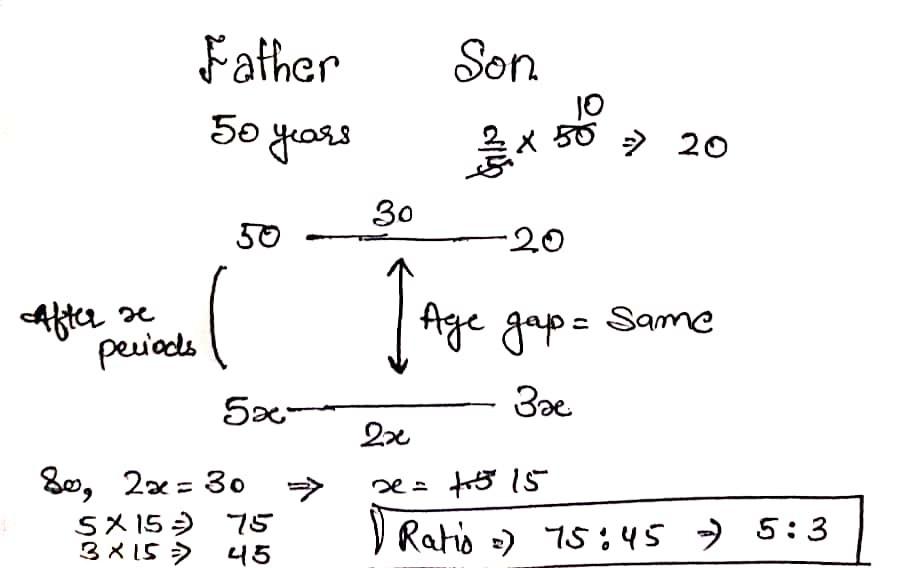 Father Son
50 years 2/5 x 50 10 => 20
50 30 20
After x periods
Age gap = Same
5x 2x 3x
So, 2x = 30 => x = 15
5 x 15 => 75
3 x 15 => 45
Ratio => 75 : 45 => 5 : 3